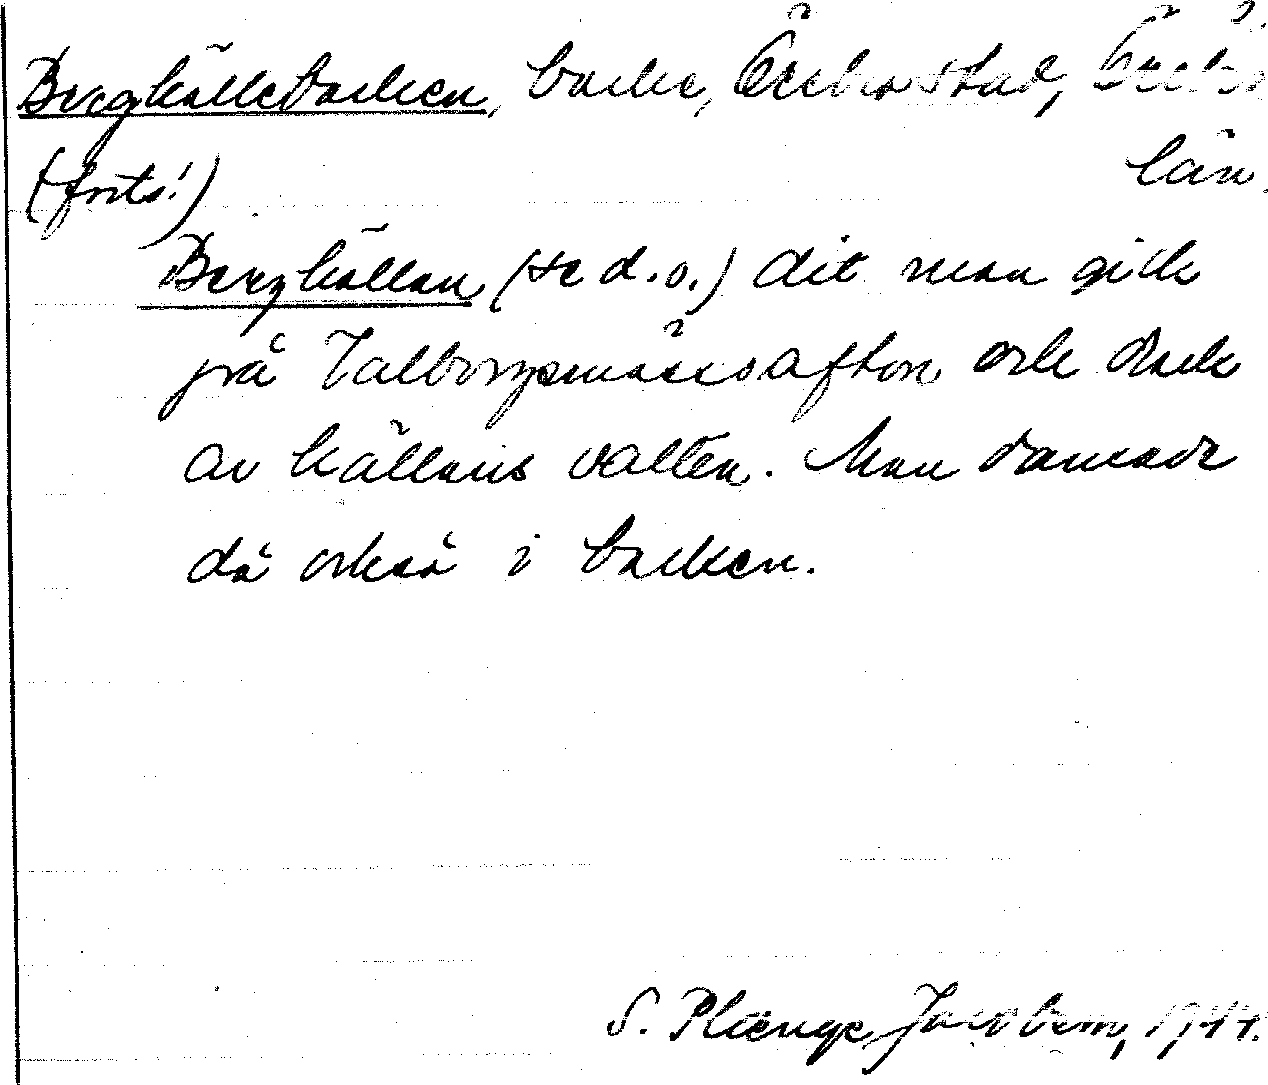 Bergkällebacken, backe, Örebro stad, Örebro
län.
(forts!)
Bergkällan (se d.o.) dit man gick
på Valborgsmässoafton och drack
av källans vatten. Man dansade
då också i backen.
S. Plænge Jacobson, 1944.